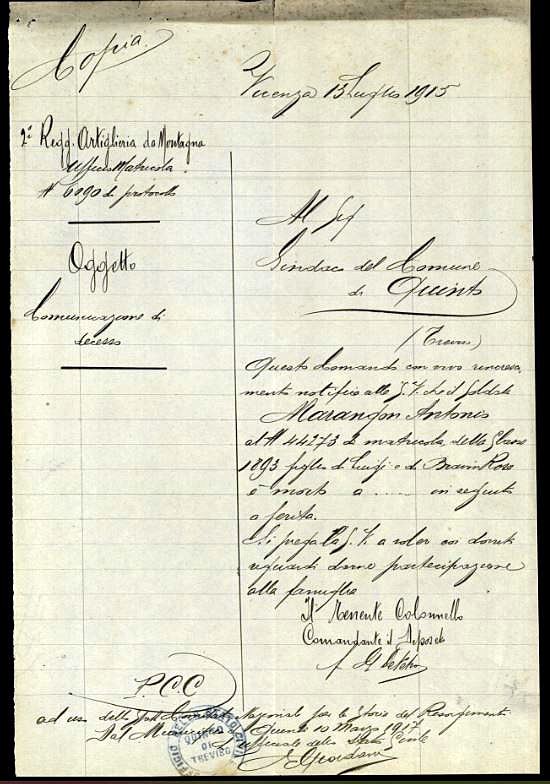 Copia.
Vicenza 13 Luglio 1915
2º Regg. Artiglieria da Montagna
Ufficio Matricola
N 6090 di protocollo
Al Sig
Sindaco del Comune
di Quinto
(Treviso)
Oggetto
Comunicazione di
decesso
Questo Comando con vivo rincresci
mento notifica alla S.V. che il Soldato
Marangon Antonio
al N 44273 di matricola della Classe
1893 figlio di Luigi e di Rosa
è morto a ..... in seguito
a ferita.
Si prega la S.V. a voler coi dovuti
riguardi darne partecipazione
alla famiglia
Il Tenente Colonnello
Comandante il Deposito
f.
P.C.C
ad uso dello Comitato Nazionale per la Storia del Risorgimento
Dal Municipio di Quinto 10 Marzo 1917
L'ufficiale dello Stato Civile
Giordani
TREVISO